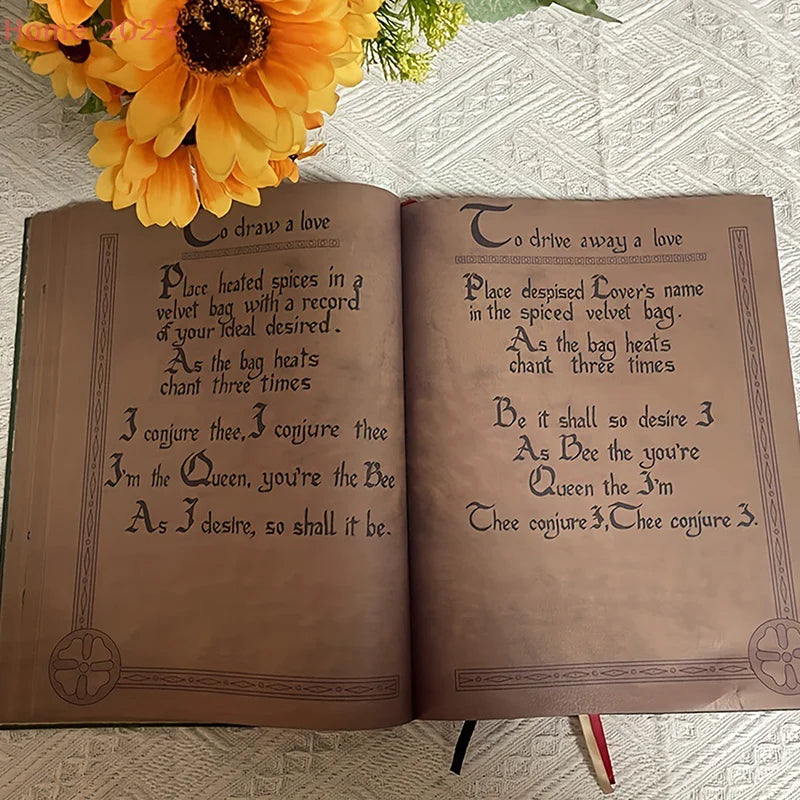 Home 2024
To draw a love
Place heated spices in a
velvet bag with a record
of your ideal desired.
As the bag heats
chant three times
I conjure thee, I conjure thee
I'm the Queen, you're the Bee
As I desire, so shall it be.
To drive away a love
Place despised Lover's name
in the spiced velvet bag.
As the bag heats
chant three times
Be it shall so desire I
As Bee the you're
Queen the I'm
Thee conjure I, Thee conjure I.